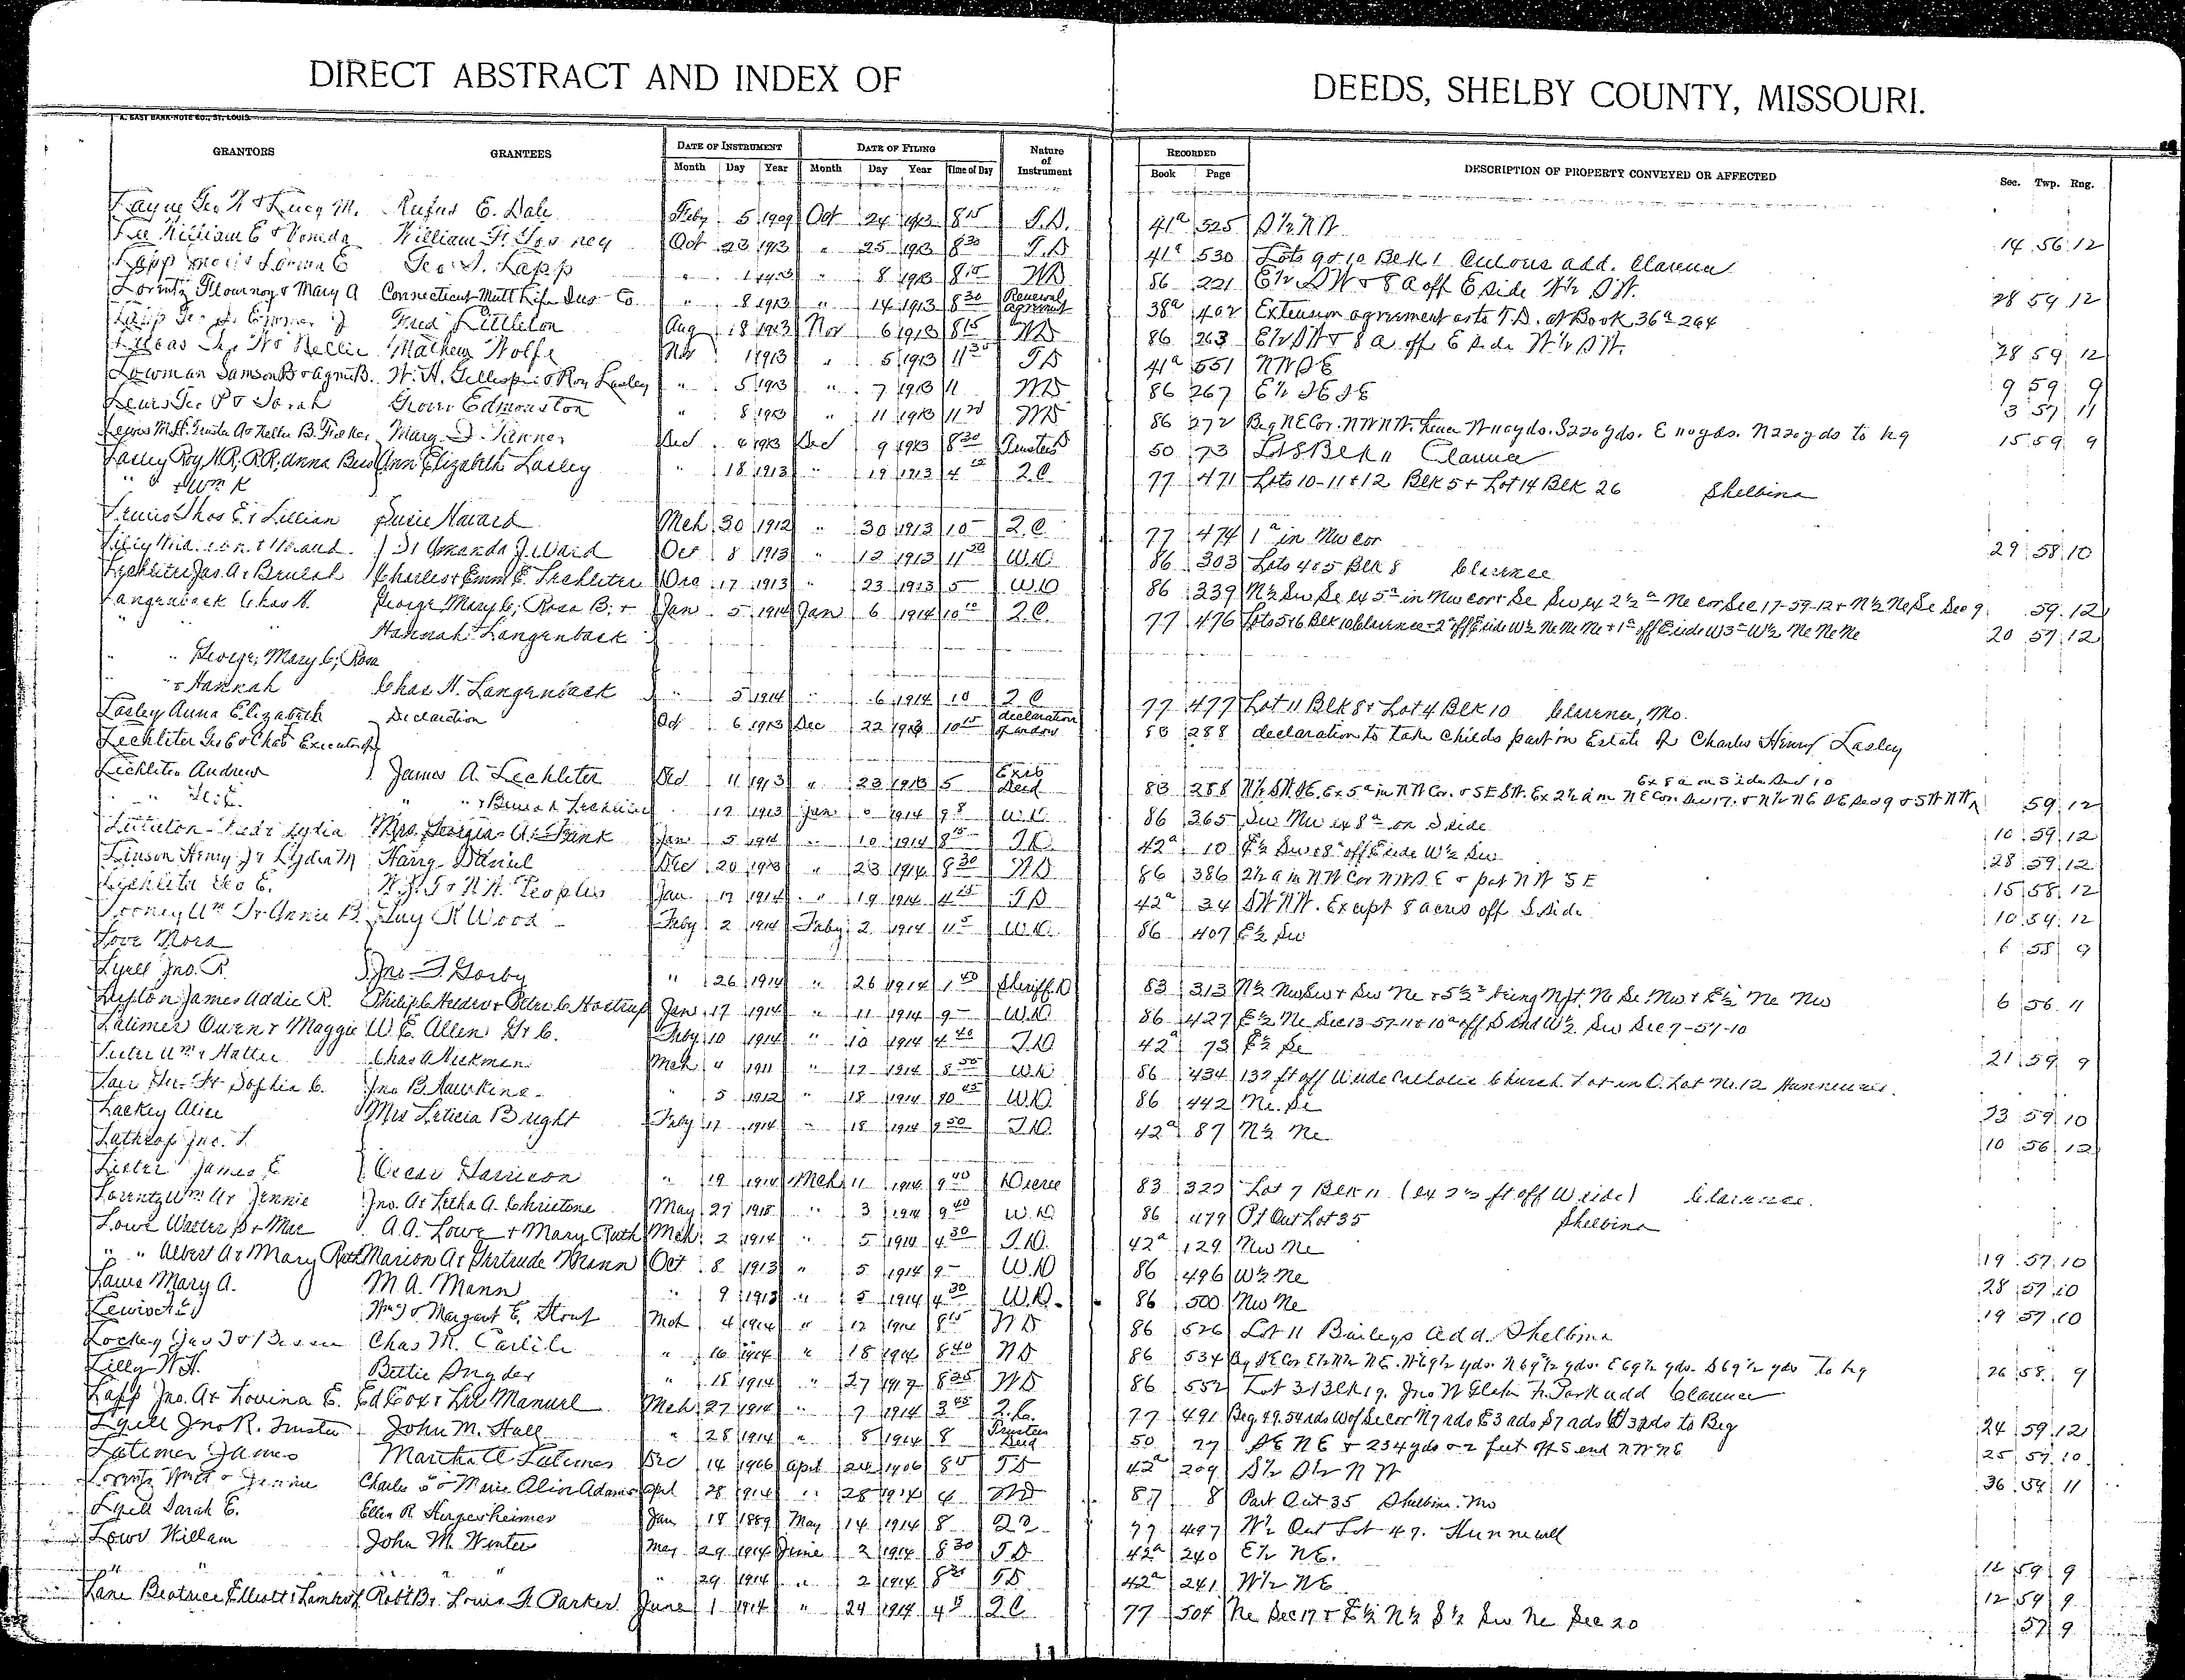 DIRECT ABSTRACT AND INDEX OF DEEDS, SHELBY COUNTY, MISSOURI.
GRANTORS GRANTEES DATE OF INSTRUMENT DATE OF FILING Nature of Instrument RECORDED DESCRIPTION OF PROPERTY CONVEYED OR AFFECTED Sec. Twp. Rng.
Month Day Year Month Day Year Time of Day Book Page
Rufus E. Dale Feby 5 1909 Oct 24 1913 8 15 T.D. 41a 525 S½ NW 14 56 12
Lee William E & William F. Oct 23 1913 " 25 1913 8 30 T.D 41a 530 Lots 9 & 10 Blk 1 add. Clarence
Lapp Geo. J. Lapp " 1 1913 " 8 1913 8 15 WD 86 221 E½ SW & 8 a off E side W½ SW. 28 59 12
Lorentz Flournoy & Mary A Connecticut Mutl Life Ins Co " 8 1913 " 14 1913 8 30 Renewal agreement 38a 402 Extension agreement as to T.D. at Book 36a 264
Lapp Geo. Fred Littleton Aug 18 1913 Nov 6 1913 8 15 WD 86 263 E½ SW & 8 a off E side W½ SW. 28 59 12
Lucas Nellie Mathew Wolfe Nov 1 1913 " 5 1913 11 30 TD 41a 551 NW SE 9 59 9
Lowman Samson B & Agnes B. W. H. Gillespie & Roy Lasley " 5 1913 " 7 1913 11 WD 86 267 E½ SE SE 3 57 11
Lewis Geo P & Sarah Grover Edmonston " 8 1913 " 11 1913 11 20 WD 86 272 Beg NE Cor. NW NW. thence W 110 yds. S 220 yds. E 110 yds. N 220 yds to beg 15 59 9
Lewis M.H. Trustee Mary Tanner Dec 4 1913 Dec 9 1913 8 30 Trustees D 50 73 Lot 8 Blk 11 Clarence
Lasley Roy Anna Ann Elizabeth Lasley " 18 1913 " 19 1913 4 2.C. 77 471 Lots 10-11 & 12 Blk 5 & Lot 14 Blk 26 Shelbina
" & Wm K
Lewis Thos E. & Lillian Susie Havard Mch 30 1912 " 30 1913 10 2.C. 77 474 1a in Nw cor 29 58 10
Amanda J. Ward Oct 8 1913 " 12 1913 11 50 W.D. 86 303 Lots 4 & 5 Blk 8 Clarence
Lechliter Jas A & Beulah Charles & Emma E. Lechliter Dec 17 1913 " 23 1913 5 W.D 86 339 N½ Sw Se ex 5a in Nw cor & Se Sw ex 2½a Ne cor Sec 17-59-12 & N½ Ne Se Sec 9 59 12
Langenback Chas H. George, Mary C, Rosa B. & Jan 5 1914 Jan 6 1914 10 10 2.C. 77 476 Lots 5 & 6 Blk 10 Clarence & 2a off E side W½ Ne Ne Ne & 1a off E side W 3a W½ Ne Ne Ne 20 57 12
" " Hannah Langenback
" " George, Mary C, Rosa
" & Hannah Chas H. Langenback " 5 1914 " 6 1914 10 2 C 77 477 Lot 11 Blk 8 & Lot 4 Blk 10 Clarence, Mo.
Lasley Anna Elizabeth Declaration Oct 6 1913 Dec 22 1913 10 15 declaration of widow 83 288 declaration to take childs part in Estate of Charles Henry Lasley
Lechliter Geo E & Chas Executors of
Lechliter Andrew James A. Lechliter Dec 11 1913 " 23 1913 5 Exec Deed 83 288 N½ SW SE. Ex 5a in NW Cor. & SE SW. Ex 2½ a in NE Cor Sec 17. & N½ NE SE Sec 9 & SW NW Ex 8 a on S side Sec 10 59 12
" Geo E. " " & Beulah Lechliter " 17 1913 Jan 1914 9 W.D. 86 365 Sw Nw ex 8a on S side 10 59 12
Littleton Fred & Lydia Mrs Georgia A. Fink Jan 5 1914 " 10 1914 8 15 T.D. 42a 10 E½ Sw & 8a off E side W½ Sw 28 59 12
Linson Henry Jr & Lydia M Harry Daniel Dec 20 1913 " 23 1914 8 30 WD 86 386 2½ a in NW Cor NW SE & prt NW SE 15 58 12
Lechliter Geo E. Peoples Jan 17 1914 " 19 1914 4 25 TD 42a 34 SW NW. Except 8 acres off S side 10 59 12
Looney Wm F & Annie B. Guy R Wood Feby 2 1914 Feby 2 1914 11 5 W.D. 86 407 E½ Sw 6 58 9
Love Nora
Lyell Jno. R. Jno. F. Gorby " 26 1914 " 26 1914 1 40 Sheriff D 83 313 N½ Nw Sw & Sw Ne & 5½a being N pt. Ne Se Nw & E½ Ne Nw 6 56 11
James Addie R. Philip C Andrew & Peter C Jan 17 1914 " 11 1914 9 W.D 86 427 E½ Ne Sec 13-57-11 & 10a off S End W½ Sw Sec 7-57-10
Latimer Owen & Maggie W E Allen Gr C. Feby 10 1914 " 10 1914 4 40 T.D 42a 73 E½ Se 21 59 9
Lester Wm & Hattie Chas A Hickman Mch 4 1911 " 12 1914 8 50 W.D 86 434 132 ft off W side Catholic Church Lot in O. Lot No. 12 Hunnewell
Lair Sophia C. Jno B. Hawkins " 5 1912 " 18 1914 10 45 W.D. 86 442 Ne Se 23 59 10
Lackey Alice Mrs Leticia Bright Feby 17 1914 " 18 1914 9 50 T.D. 42a 87 N½ Ne 10 56 12
Lathrop Jno. T.
Lester James E Oscar Garrison " 19 1914 Mch 11 1914 9 40 Decree 83 322 Lot 7 Blk 11 (ex 2½ ft off W side) Clarence.
Lorentz Wm H & Jennie Jno. A & Letha A. Christine May 27 1918 " 3 1914 9 40 W.D 86 479 Pt Out Lot 35 Shelbina
Lowe Walter S & Mae A.A. Lowe & Mary Ruth Mch 2 1914 " 5 1914 4 30 T.D. 42a 129 Nw Ne 19 57 10
" " Albert A & Mary Ruth Marion A & Gertrude Mann Oct 8 1913 " 5 1914 9 W.D 86 496 W½ Ne 28 57 10
Laws Mary A. M. A. Mann " 9 1913 " 5 1914 4 30 W.D. 86 500 Nw Ne 19 57 10
Lewis Wm J & Margaret E. Stout Mch 4 1914 " 12 1914 8 15 WD 86 526 Lot 11 Baileys Add. Shelbina
Lockey Chas M. Carlile " 16 1914 " 18 1914 8 40 WD 86 534 Bg SE Cor E½ N½ NE. W 69½ yds. N 69½ yds. E 69½ yds. S 69½ yds To beg 26 58 9
Lilly W.H. Bettie Snyder " 18 1914 " 27 1917 8 25 WD 86 552 Lot 3 Blk 19. Jno W Park add Clarence
Lapp Jno. A & Lovina E. Ed Cox & Manuel Mch 27 1914 " 7 1914 3 45 2.C. 77 491 Beg. 49.54 rds W of Se cor N 7 rds E 3 rds S 7 rds W 3 rds to Beg 24 59 12
Lyell Jno R. Trustee John M. Hall " 28 1914 " 8 1914 8 Trustees Deed 50 77 SE NE & 234 yds & 2 feet off S end NW NE 25 57 10
Latimer James Martha A Latimer Dec 14 1906 April 24 1906 8 15 TD 42a 209 S½ S½ NW 36 59 11
Lorentz & Jennie Charles & Marie Alice Adams April 28 1914 " 28 1914 4 WD 87 8 Part Out 35 Shelbina. Mo
Lyell Sarah E. Ellen R. Hergesheimer Jan 18 1889 May 14 1914 8 77 497 W½ Out Lot 49. Hunnewell
Lowe William John M. Winter May 29 1914 June 2 1914 8 30 TD 42a 240 E½ NE. 12 59 9
" " " " " 29 1914 " 2 1914 8 30 TD 42a 241 W½ NE 12 59 9
Lane Beatrice Elliott Robt B & Louis F. Parker June 1 1914 " 24 1914 4 15 2C 77 504 Ne Sec 17 & E½ N½ S½ Sw Ne Sec 20 57 9